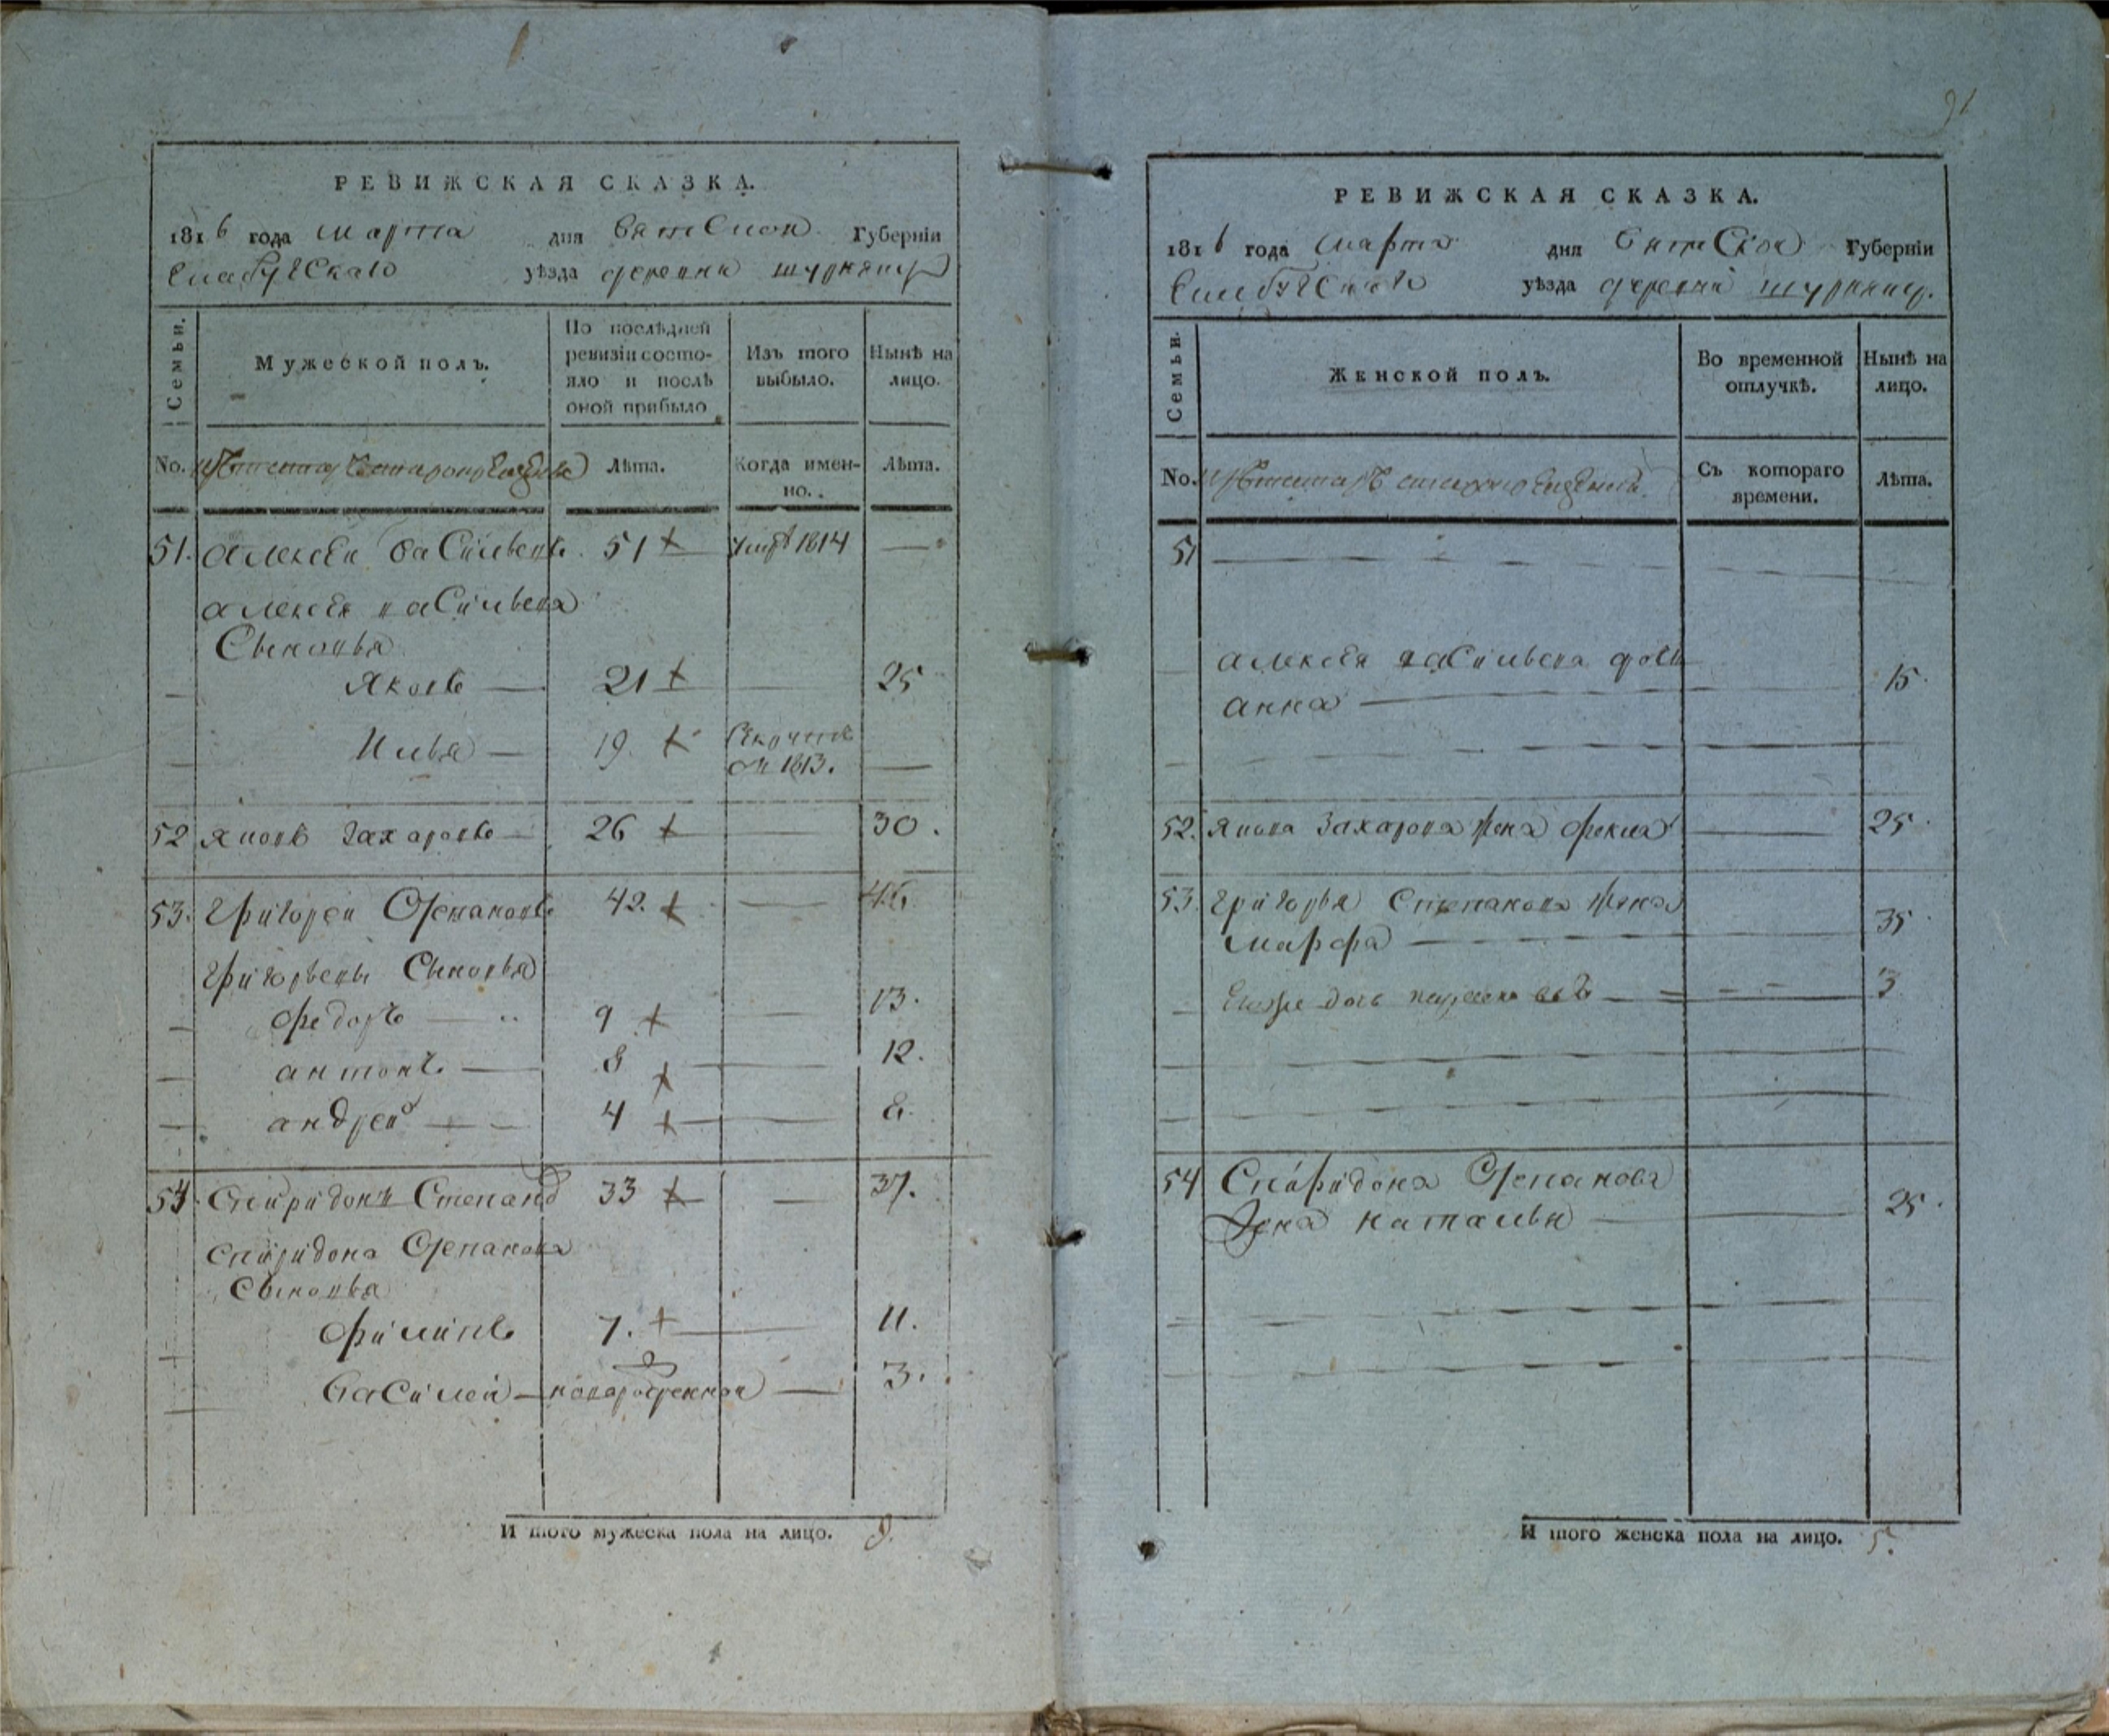 91
РЕВИЖСКАЯ СКАЗКА.
1816 года марта дня Вятской Губерніи
Елабужскаго уѣзда деревни
Семьи.
Мужеской полъ.
По послѣдней ревизіи состо-
яло и послѣ
оной прибыло
Изъ того
выбыло.
Нынѣ на
лицо.
No.
Лѣта.
Когда имен-
но.
Лѣта.
51. Алексѣй Васильевъ 51 умре 1814 —
Алексѣя Васильева
Сыновья
Яковъ — 21 — 25
Илья — 19. 1813. —
52 Захаровъ — 26 — 30.
53. Григорей Степановъ 42. — 46
Григорьевы Сыновья
Федоръ — 9 — 13.
Антонъ — 8 — 12.
Андрей — 4 — 8.
54. Спиридонъ Степановъ 33 — 37.
Спиридона Степанова
Сыновья
Филипъ 7. — 11.
Василей — новорожденной — 3.
И того мужеска пола на лицо. 9.
РЕВИЖСКАЯ СКАЗКА.
1816 года Марта дня Вятской Губерніи
Елабужскаго уѣзда деревни
Семьи.
Женской полъ.
Во временной
отлучкѣ.
Нынѣ на
лицо.
No.
Съ котораго
времени.
Лѣта.
51
Алексѣя Васильева дочь
Анна — 15.
52. Захарова жена Фекла — 25.
53. Григорья Степанова жена
Марфа — 35
дочь — 3
54 Спиридона Степанова
Жена Наталья — 25.
И того женска пола на лицо. 5.